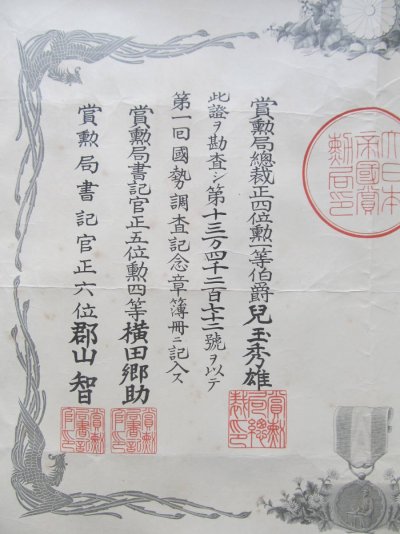 大日本
帝國賞
勲局印
賞勲局總裁正四位勲一等伯爵兒玉秀雄
賞勲局總裁印
此證ヲ勘査シ第十三万四千二百七十二號ヲ以テ
第一回國勢調査記念章簿冊ニ記入ス
賞勲局書記官正五位勲四等横田郷助
賞勲局書記官印
賞勲局書記官正六位郡山智
賞勲局書記官印